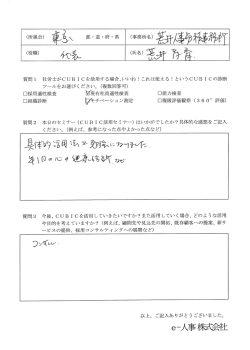 (所属会) 東京 都・道・府・県 (事務所名) 荒井人事労務事務所
(役職) 代表 (氏名) 荒井
質問1 社労士がCUBICを活用する場合、いいね!これは使える!というCUBICの診断
ツールをお選びください。(複数回答可)
□採用適性検査 現有社員適性検査 □能力検査
□組織診断 モチベーション測定 □職務評価観察(360°評価)
質問2 本日のセミナー(CUBIC活用セミナー)はいかがでしたか?具体的な感想をご記入
ください。(例えば、参考になった点やよかった点など)
具体的活用法が勉強になりました。
質問3 今後、CUBICを活用していきたいですか?また活用していく場合、どのような活用
や目的をお考えですか?(例えば、顧問先や見込先の開拓、既存顧客への提案、新サ
ービスの提供、採用コンサルティングへの展開など)
コンサル
以上、ご記入ありがとうございました。
e-人事株式会社